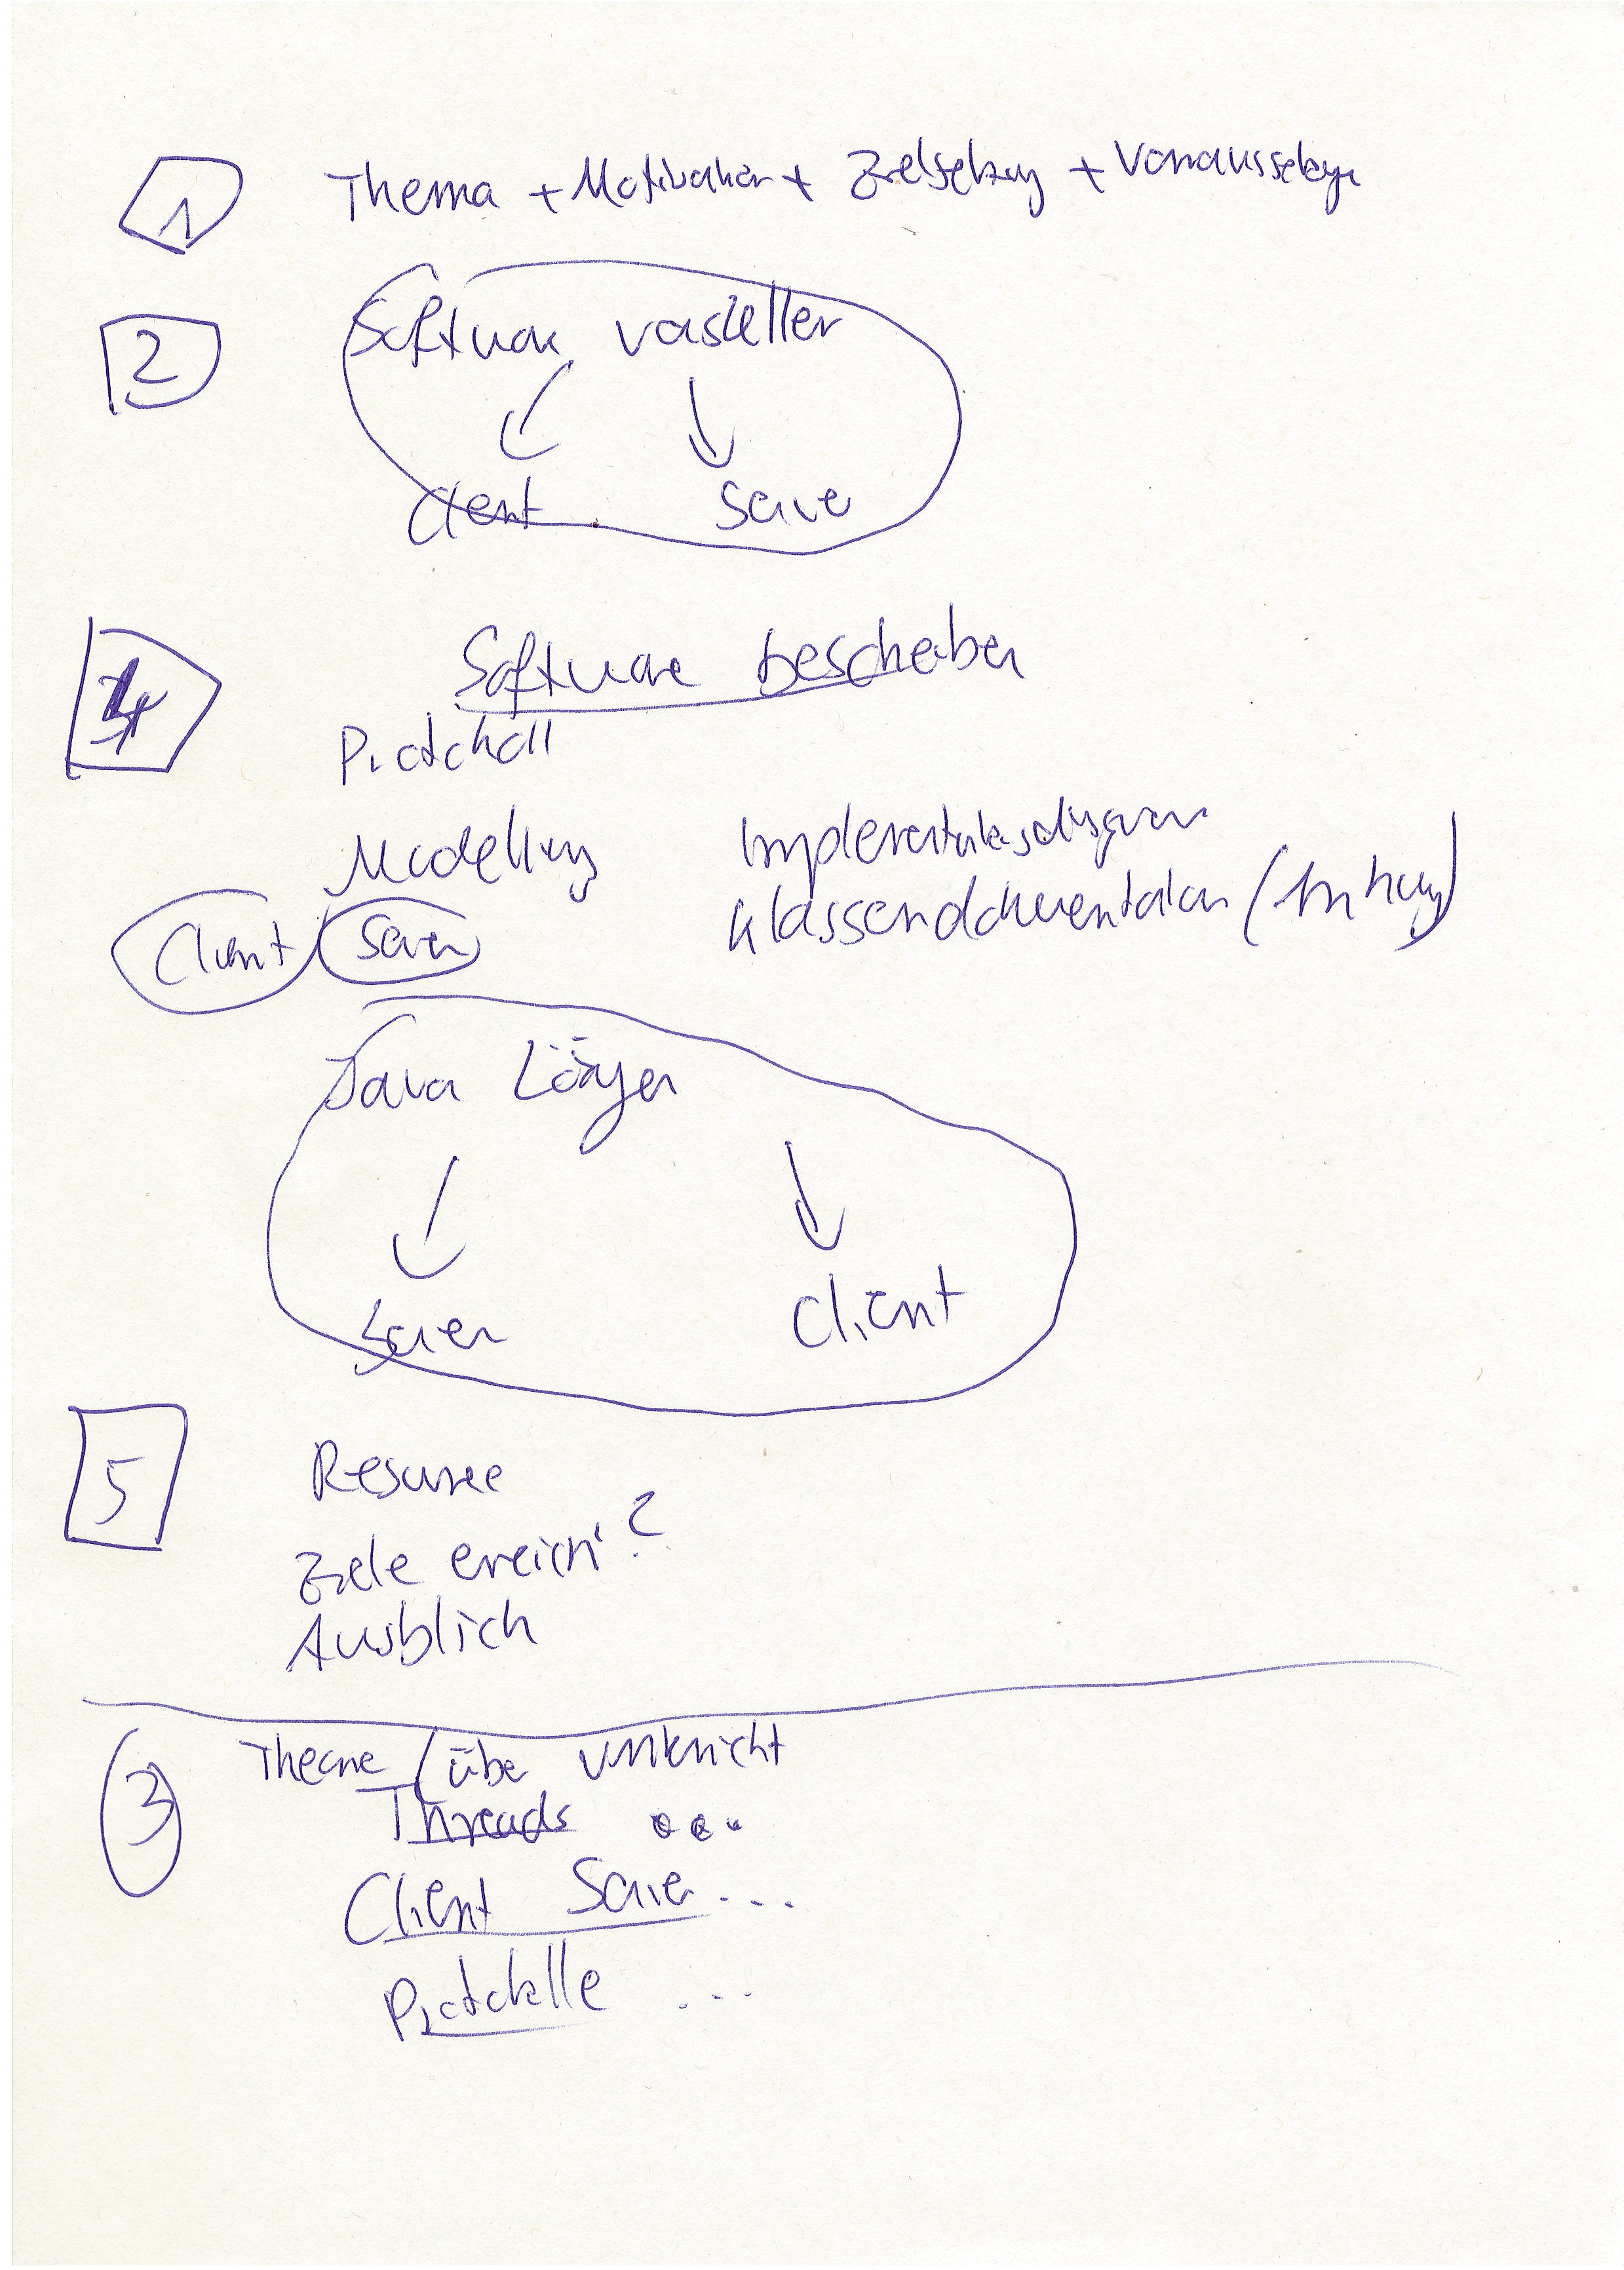 1 Thema + Motivation + Zielsetzung + Voraussetzungen
2 Software vorstellen
Client Server
4 Software beschreiben
Protokoll
Modellierung Implementationsdiagramm
Klassendokumentation (Anhang)
Client Server
Java Lösungen
Server Client
5 Resumee
Ziele erreicht?
Ausblick
3 Theorie / über Unterricht
Threads ...
Client Server ...
Protokolle ...